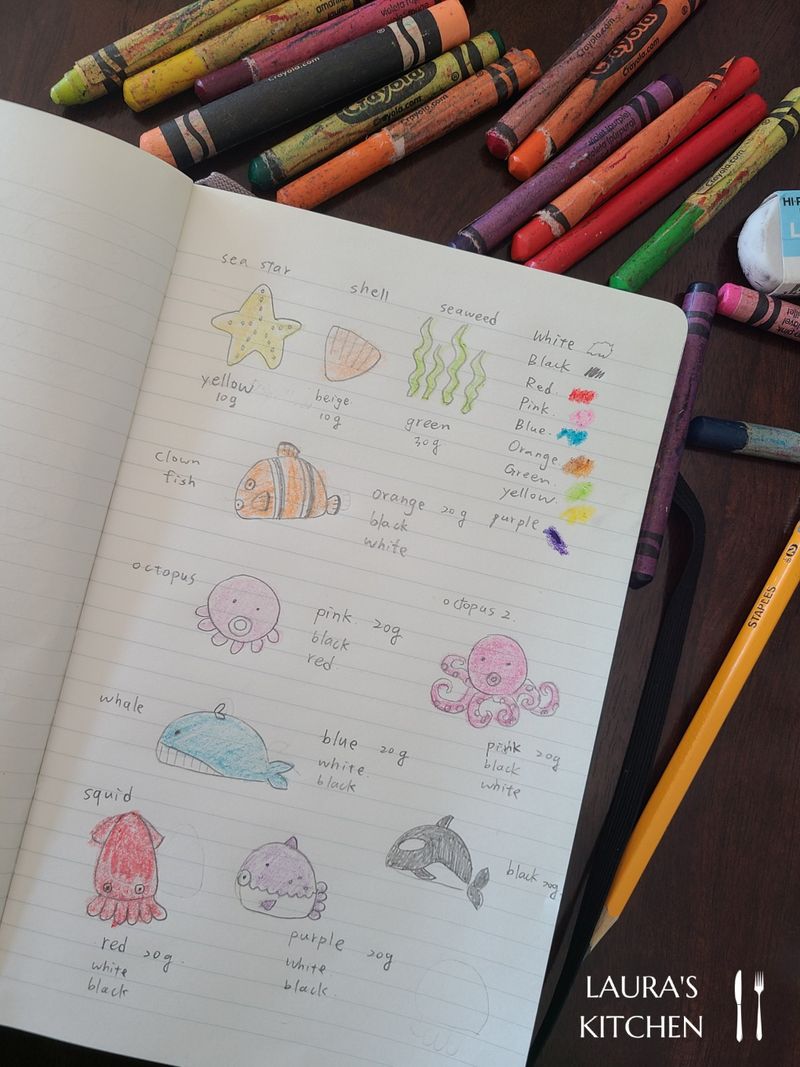 Crayola
crayola.com
Crayola
violet (purple)
violet (purple)
Crayola
Crayola.com
HI-P
sea star
shell
seaweed
yellow
10g
beige
10g
green
30g
White
Black
Red.
Pink.
Blue.
Orange.
Green.
yellow.
purple
clown
fish
orange 20g
black
white
octopus
pink. 20g
black
red
octopus 2.
pink 20g
black
white
whale
blue 20g
white.
black
squid
red 20g.
white
black
purple 20g
white
black.
black 20g.
STAPLES
LAURA'S
KITCHEN